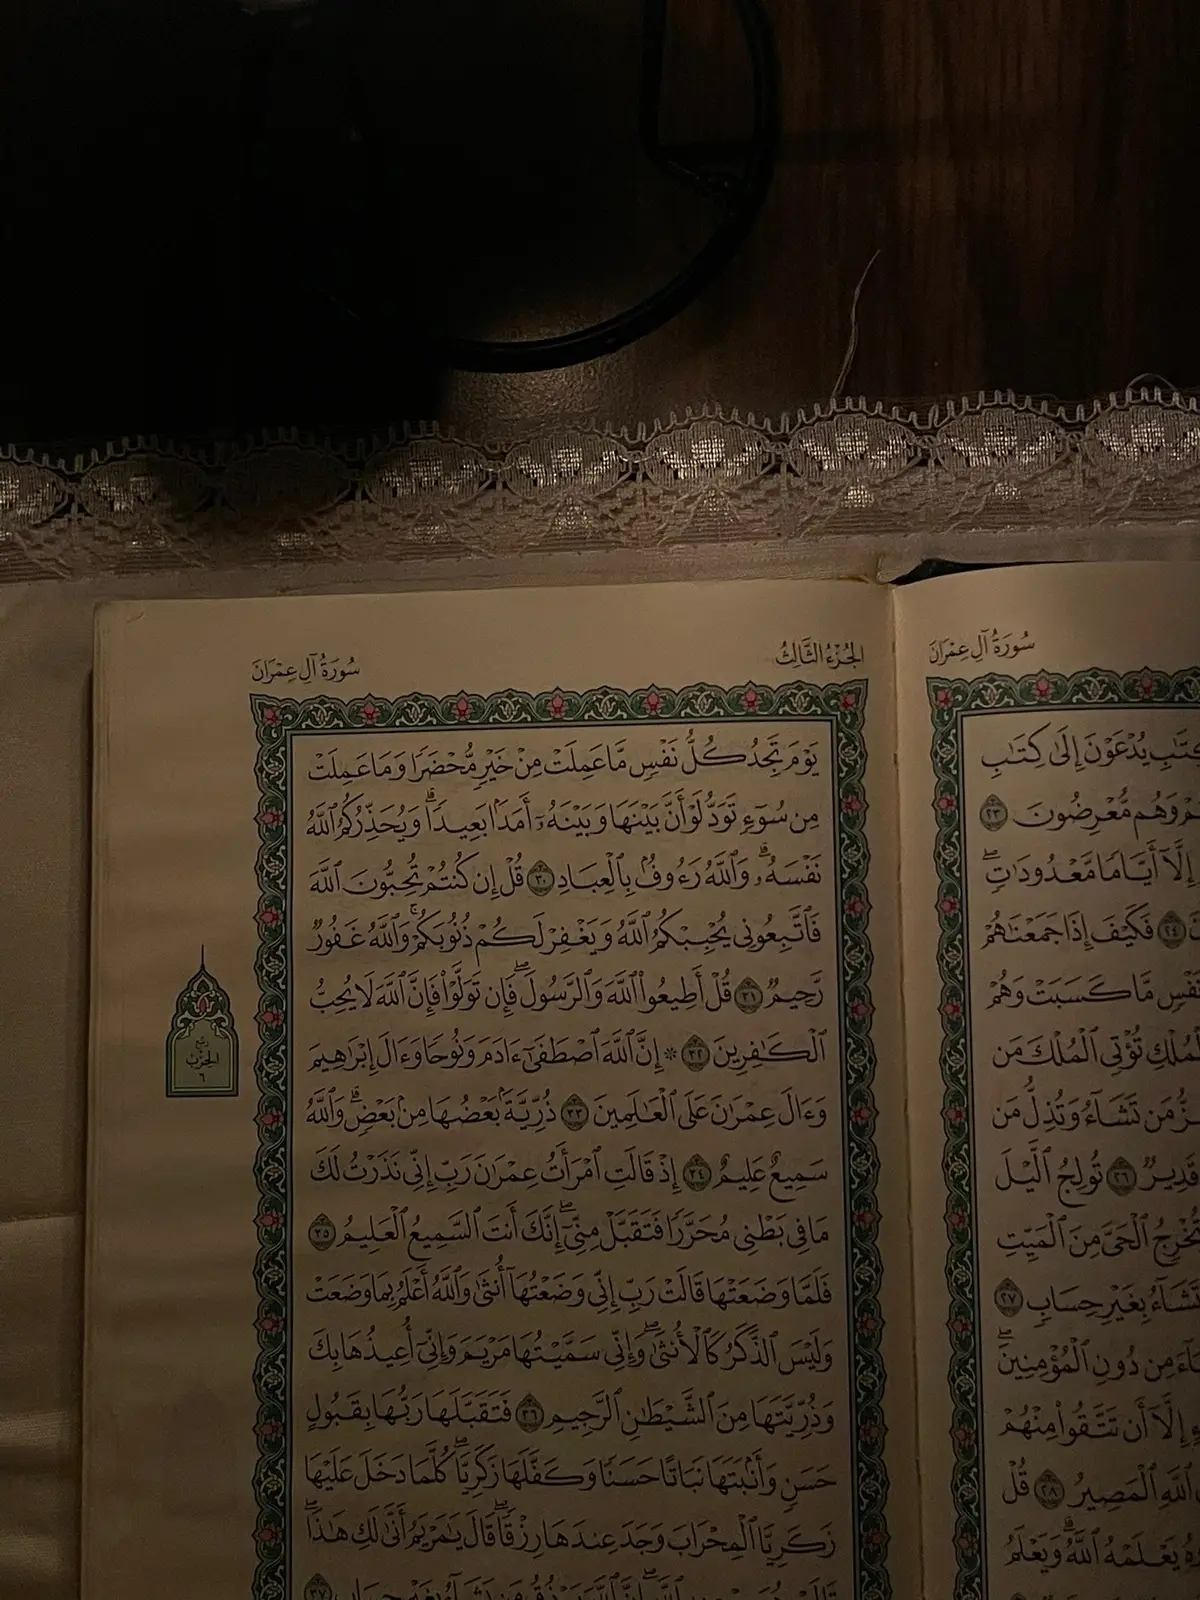 سُورَةُ آلِ عِمْرَانَ
كِتَٰبِ يُدْعَوْنَ إِلَىٰ كِتَٰبِ
وَهُم مُّعْرِضُونَ ٢٣
إِلَّآ أَيَّامًا مَّعْدُودَٰتٍۖ
٢٤ فَكَيْفَ إِذَا جَمَعْنَٰهُمْ
نَفْسٍ مَّا كَسَبَتْ وَهُمْ
ٱلْمُلْكِ تُؤْتِى ٱلْمُلْكَ مَن
مَن تَشَآءُ وَتُذِلُّ مَن
قَدِيرٌ ٢٦ تُولِجُ ٱلَّيْلَ
تُخْرِجُ ٱلْحَىَّ مِنَ ٱلْمَيِّتِ
تَشَآءُ بِغَيْرِ حِسَابٍ ٢٧
مِن دُونِ ٱلْمُؤْمِنِينَۖ
إِلَّآ أَن تَتَّقُوا۟ مِنْهُمْ
ٱللَّهِ ٱلْمَصِيرُ ٢٨ قُلْ
يَعْلَمْهُ ٱللَّهُۗ وَيَعْلَمُ
الجُزْءُ الثَّالِثُ
سُورَةُ آلِ عِمْرَانَ
يَوْمَ تَجِدُ كُلُّ نَفْسٍ مَّا عَمِلَتْ مِنْ خَيْرٍ مُّحْضَرًا وَمَا عَمِلَتْ
مِن سُوٓءٍ تَوَدُّ لَوْ أَنَّ بَيْنَهَا وَبَيْنَهُۥٓ أَمَدًۢا بَعِيدًاۗ وَيُحَذِّرُكُمُ ٱللَّهُ
نَفْسَهُۥۗ وَٱللَّهُ رَءُوفٌۢ بِٱلْعِبَادِ ٣٠ قُلْ إِن كُنتُمْ تُحِبُّونَ ٱللَّهَ
فَٱتَّبِعُونِى يُحْبِبْكُمُ ٱللَّهُ وَيَغْفِرْ لَكُمْ ذُنُوبَكُمْۚ وَٱللَّهُ غَفُورٌ
رَّحِيمٌ ٣١ قُلْ أَطِيعُوا۟ ٱللَّهَ وَٱلرَّسُولَۖ فَإِن تَوَلَّوْا۟ فَإِنَّ ٱللَّهَ لَا يُحِبُّ
ٱلْكَٰفِرِينَ ٣٢ ۞ إِنَّ ٱللَّهَ ٱصْطَفَىٰٓ ءَادَمَ وَنُوحًا وَءَالَ إِبْرَٰهِيمَ
وَءَالَ عِمْرَٰنَ عَلَى ٱلْعَٰلَمِينَ ٣٣ ذُرِّيَّةًۢ بَعْضُهَا مِنۢ بَعْضٍۗ وَٱللَّهُ
سَمِيعٌ عَلِيمٌ ٣٤ إِذْ قَالَتِ ٱمْرَأَتُ عِمْرَٰنَ رَبِّ إِنِّى نَذَرْتُ لَكَ
مَا فِى بَطْنِى مُحَرَّرًا فَتَقَبَّلْ مِنِّىٓۖ إِنَّكَ أَنتَ ٱلسَّمِيعُ ٱلْعَلِيمُ ٣٥
فَلَمَّا وَضَعَتْهَا قَالَتْ رَبِّ إِنِّى وَضَعْتُهَآ أُنثَىٰ وَٱللَّهُ أَعْلَمُ بِمَا وَضَعَتْ
وَلَيْسَ ٱلذَّكَرُ كَٱلْأُنثَىٰۖ وَإِنِّى سَمَّيْتُهَا مَرْيَمَ وَإِنِّىٓ أُعِيذُهَا بِكَ
وَذُرِّيَّتَهَا مِنَ ٱلشَّيْطَٰنِ ٱلرَّجِيمِ ٣٦ فَتَقَبَّلَهَا رَبُّهَا بِقَبُولٍ
حَسَنٍ وَأَنۢبَتَهَا نَبَاتًا حَسَنًا وَكَفَّلَهَا زَكَرِيَّاۖ كُلَّمَا دَخَلَ عَلَيْهَا
زَكَرِيَّا ٱلْمِحْرَابَ وَجَدَ عِندَهَا رِزْقًاۖ قَالَ يَٰمَرْيَمُ أَنَّىٰ لَكِ هَٰذَاۖ
٣٧
رُبْع
الحِزْب
٦